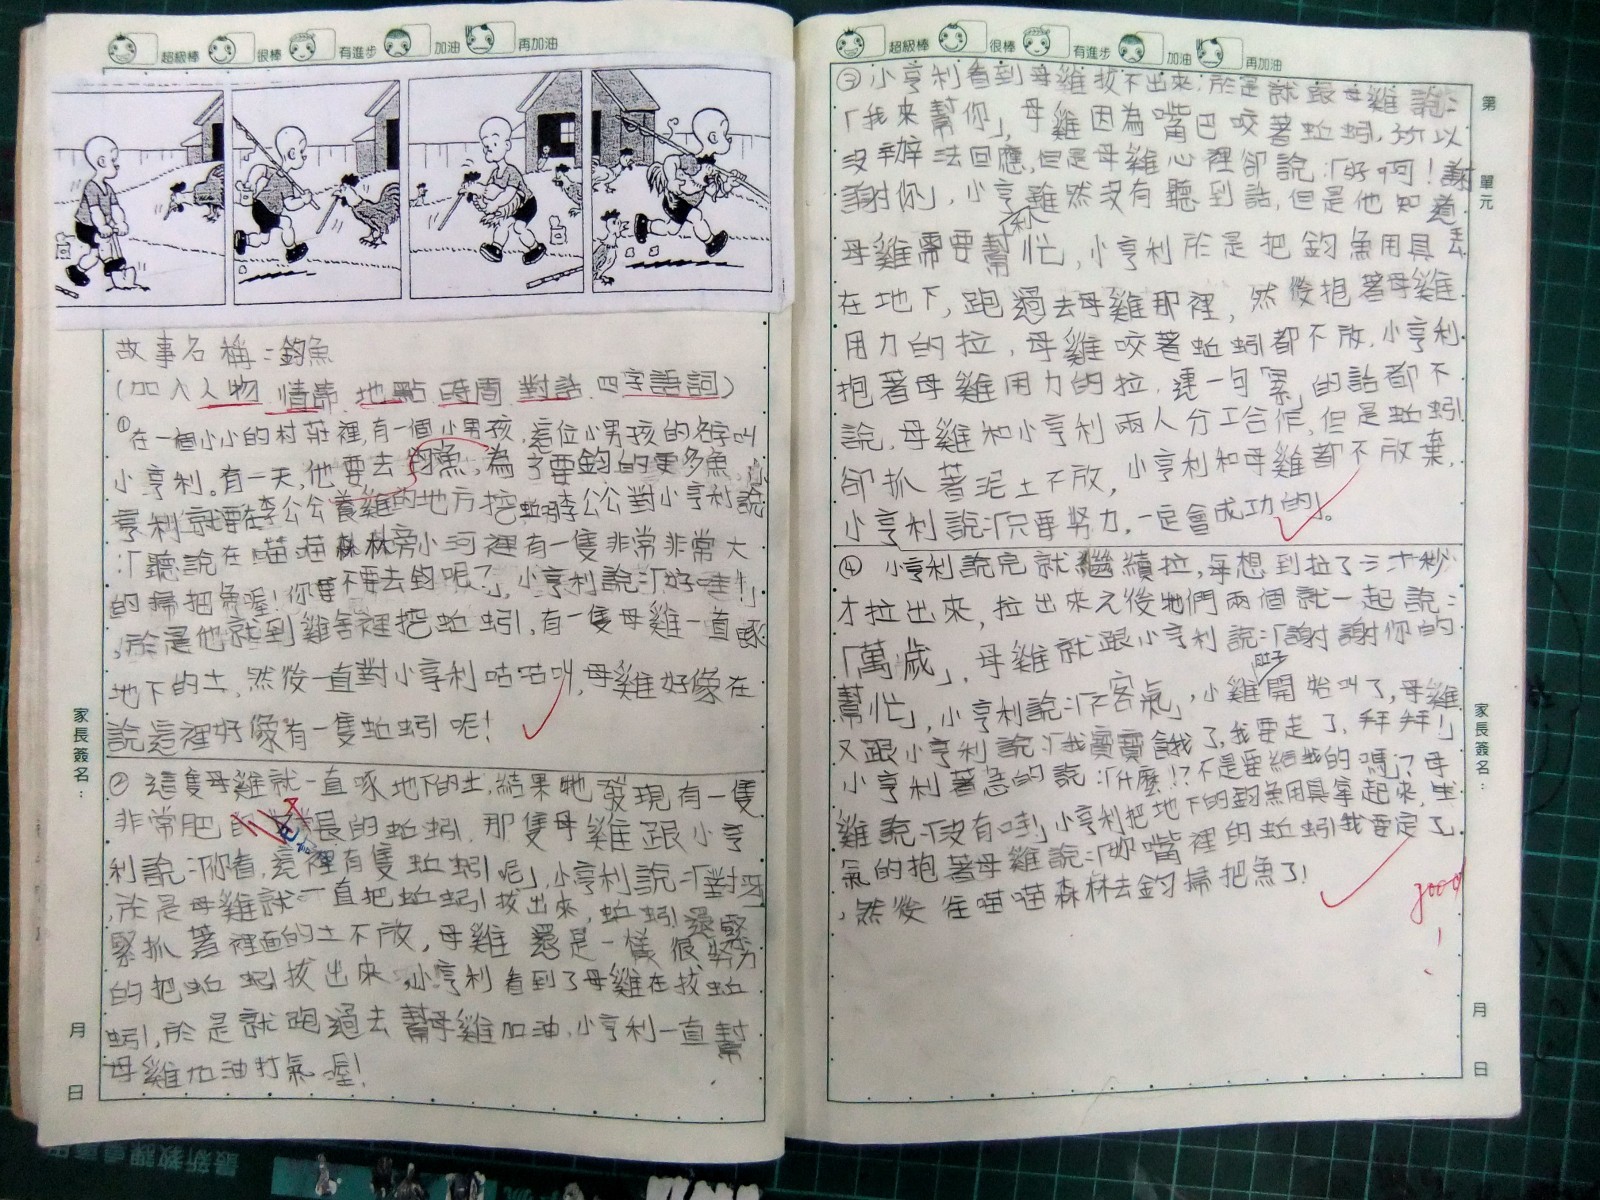 超級棒 很棒 有進步 加油 再加油
故事名稱：釣魚
(加入人物、情節、地點、時間、對話、四字語詞)
①在一個小小的村莊裡,有一個小男孩,這位小男孩的名字叫
小亨利。有一天,他要去釣魚,為了要釣的更多魚,小
亨利就要在李公公養雞的地方挖蚯蚓李公公對小亨利說
:「聽說在喵喵森林旁小河裡有一隻非常非常大
的掃把魚喔!你要不要去釣呢?」,小亨利說:「好哇!」
,於是他就到雞舍裡挖蚯蚓,有一隻母雞一直啄
地下的土,然後一直對小亨利咕咕叫,母雞好像在
說這裡好像有一隻蚯蚓呢!
②這隻母雞就一直啄地下的土,結果牠發現有一隻
非常肥 長的蚯蚓,那隻母雞跟小亨
利說:「你看,這裡有隻蚯蚓呢」,小亨利說:「對呀
,於是母雞就一直把蚯蚓拔出來,蚯蚓還緊
緊抓著裡面的土不放,母雞還是一樣很努力
的把蚯蚓拔出來,小亨利看到了母雞在拔蚯
蚓,於是就跑過去幫母雞加油,小亨利一直幫
母雞加油打氣喔!
家長簽名：
月
日
超級棒 很棒 有進步 加油 再加油
第
單元
③小亨利看到母雞拔不出來,於是就跟母雞說:
「我來幫你」,母雞因為嘴巴咬著蚯蚓,所以
沒辦法回應,但是母雞心裡卻說:「好啊!謝
謝你」,小亨利雖然沒有聽到話,但是他知道
母雞需要幫忙,小亨利於是把釣魚用具丟
在地下,跑過去母雞那裡,然後抱著母雞
用力的拉,母雞咬著蚯蚓都不放,小亨利
抱著母雞用力的拉,連一句「累」的話都不
說,母雞和小亨利兩人分工合作,但是蚯蚓
卻抓著泥土不放,小亨利和母雞都不放棄,
小亨利說:「只要努力,一定會成功的」。
④小亨利說完就繼續拉,每想到拉了三十秒
才拉出來,拉出來之後牠們兩個就一起說:
「萬歲」,母雞就跟小亨利說:「謝謝你的
幫忙」,小亨利說:「不客氣」,小雞肚子開始叫了,母雞
又跟小亨利說:「我寶寶餓了,我要走了,拜拜!」
小亨利著急的說:「什麼!?不是要給我的嗎?」母
雞說:「沒有哇!」小亨利把地下的釣魚用具拿起來,生
氣的抱著母雞說:「妳嘴裡的蚯蚓我要定了」
,然後往喵喵森林去釣掃把魚了!
good!
家長簽名：
月
日